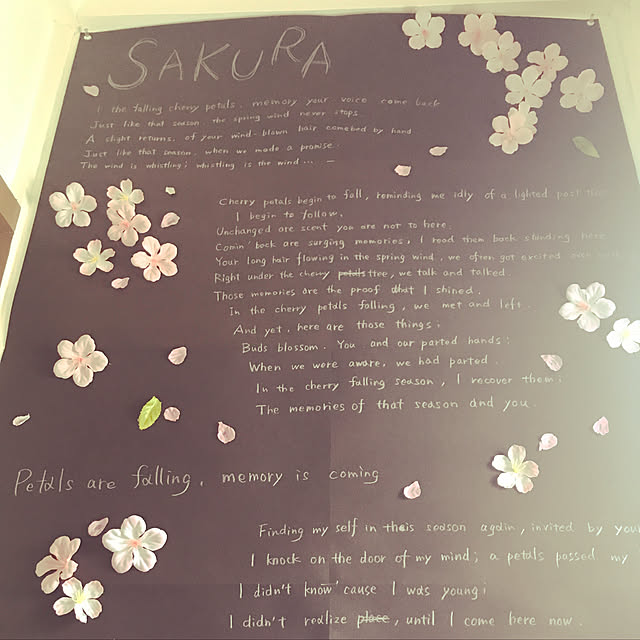 SAKURA
I the falling cherry petals, memory your voice come back
Just like that season, the spring wind never stops.
A slight returns, of your wind-blown hair comebed by hand
Just like that season, when we made a promise.
The wind is whistling; whistling is the wind... —
Cherry petals begin to fall, reminding me idly of a lighted past
I begin to follow.
Unchanged are scent you are not to here.
Comin' back are surging memories, I read them back standing here
Your long hair flowing in the spring wind, we often got excited over
Right under the cherry petals tree, we talk and talked.
Those memories are the proof that I shined.
In the cherry petals falling, we met and left.
And yet, here are those things;
Buds blossom. You and our parted hands;
When we were aware, we had parted.
In the cherry falling season, I recover them;
The memories of that season and you.
Petals are falling, memory is coming
Finding my self in this season again, invited by your
I knock on the door of my mind; a petals passed my
I didn't know 'cause I was young;
I didn't realize place, until I come here now.